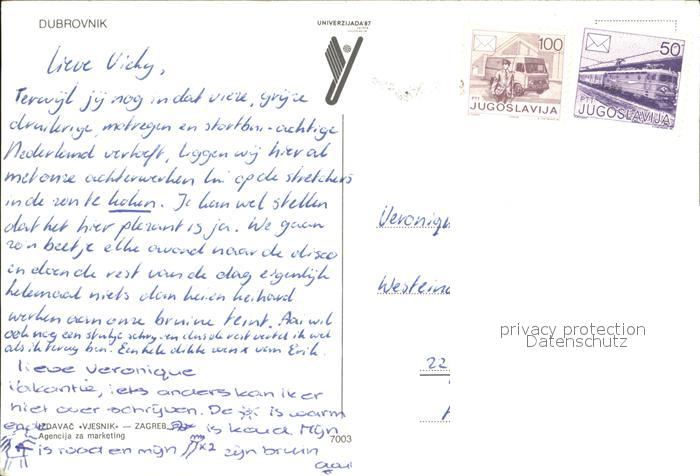 DUBROVNIK
UNIVERZIJADA'87
100
PTT
JUGOSLAVIJA
50
PTT
JUGOSLAVIJA
Lieve Vicky,
Terwijl jij nog in dat vieze, grijze
druilerige, motregen en stortbui-achtige
Nederland vertoeft, liggen wij hier al
met onze achterwerken lui op de stretchers
in de zon te koken. Je kan wel stellen
dat het hier plezant is ja. We gaan
zo'n beetje elke avond naar de disco
en doen de rest van de dag eigenlijk
helemaal niets dan heien keihard
werken aan onze bruine teint. Aau wil
ook nog een stukje schrijven dus de rest vertel ik wel
als ik terug ben. Een hele dikke van Erik.
Lieve Veronique
Vakantie, iets anders kan ik er
niet over schrijven. De is warm
en de is koud. Mijn
is rood en mijn x2 zijn bruin
Veroniq
Westein
22
IZDAVAČ «VJESNIK» — ZAGREB
Agencija za marketing
7003
privacy protection
Datenschutz